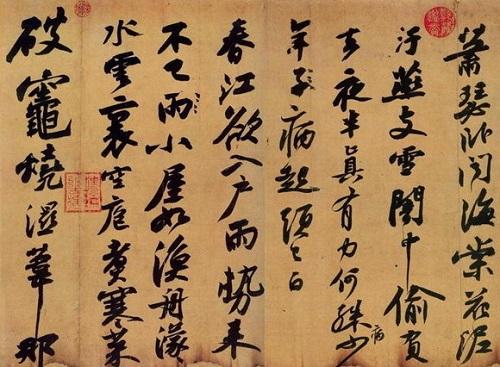 蕭瑟卧聞海棠花泥
汙燕支雪闇中偷負
去夜半真有力何殊病少
年子病起頭已白
春江欲入户雨勢來
不已雨小屋如漁舟濛
水雲裏空庖煮寒菜
破竈燒濕葦那